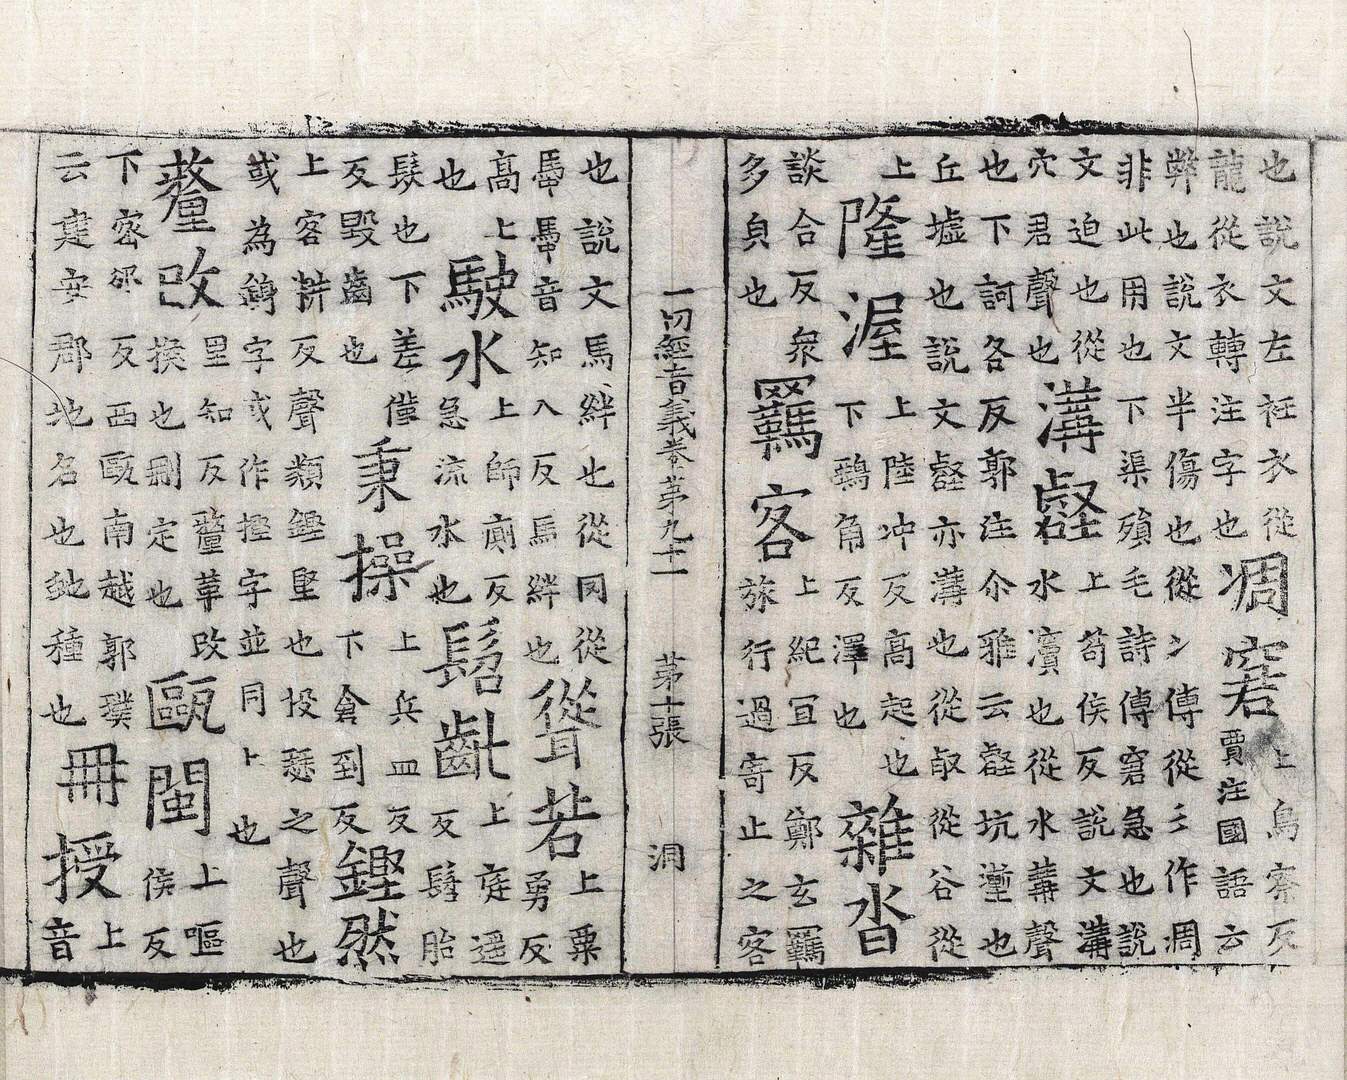 也說文左衽衣從
龍從衣轉注字也
凋窘
上鳥寮反
賈注國語云
弊也說文半傷也從冫傳從彡作凋
非此用也下渠殞毛詩傳窘急也說
文迫也從
穴君聲也
溝壑
上苟侯反說文溝
水瀆也從水冓聲
也下訶各反郭注尒雅云壑坑壍也
丘墟也說文壑亦溝也從㕡從谷從
上
隆渥
上陸冲反高起也
下鵶角反澤也
雜沓
談合反衆
多皃也
羈客
上紀冝反鄭玄羈
旅行過寄止之客
一切經音義卷第九十一 第十張 洞
也說文馬絆也從囘從
馽馽音知入反馬絆也
聳若
上粟
勇反
高上
也
駛水
上師廁反
急流水也
髫齔
上庭遥
反髫胎
髮也下差僅
反毀齒也
秉操
上兵皿反
下倉到反
鏗然
上客耕反聲類鏗堅也投瑟之聲也
或為鏄字或作摼字並同上也
釐改
里知反釐革改
換也刪定也
甌閩
上嘔
侯反
下密邠反西甌南越郭璞
云建安郡地名也虵種也
冊授
上
音